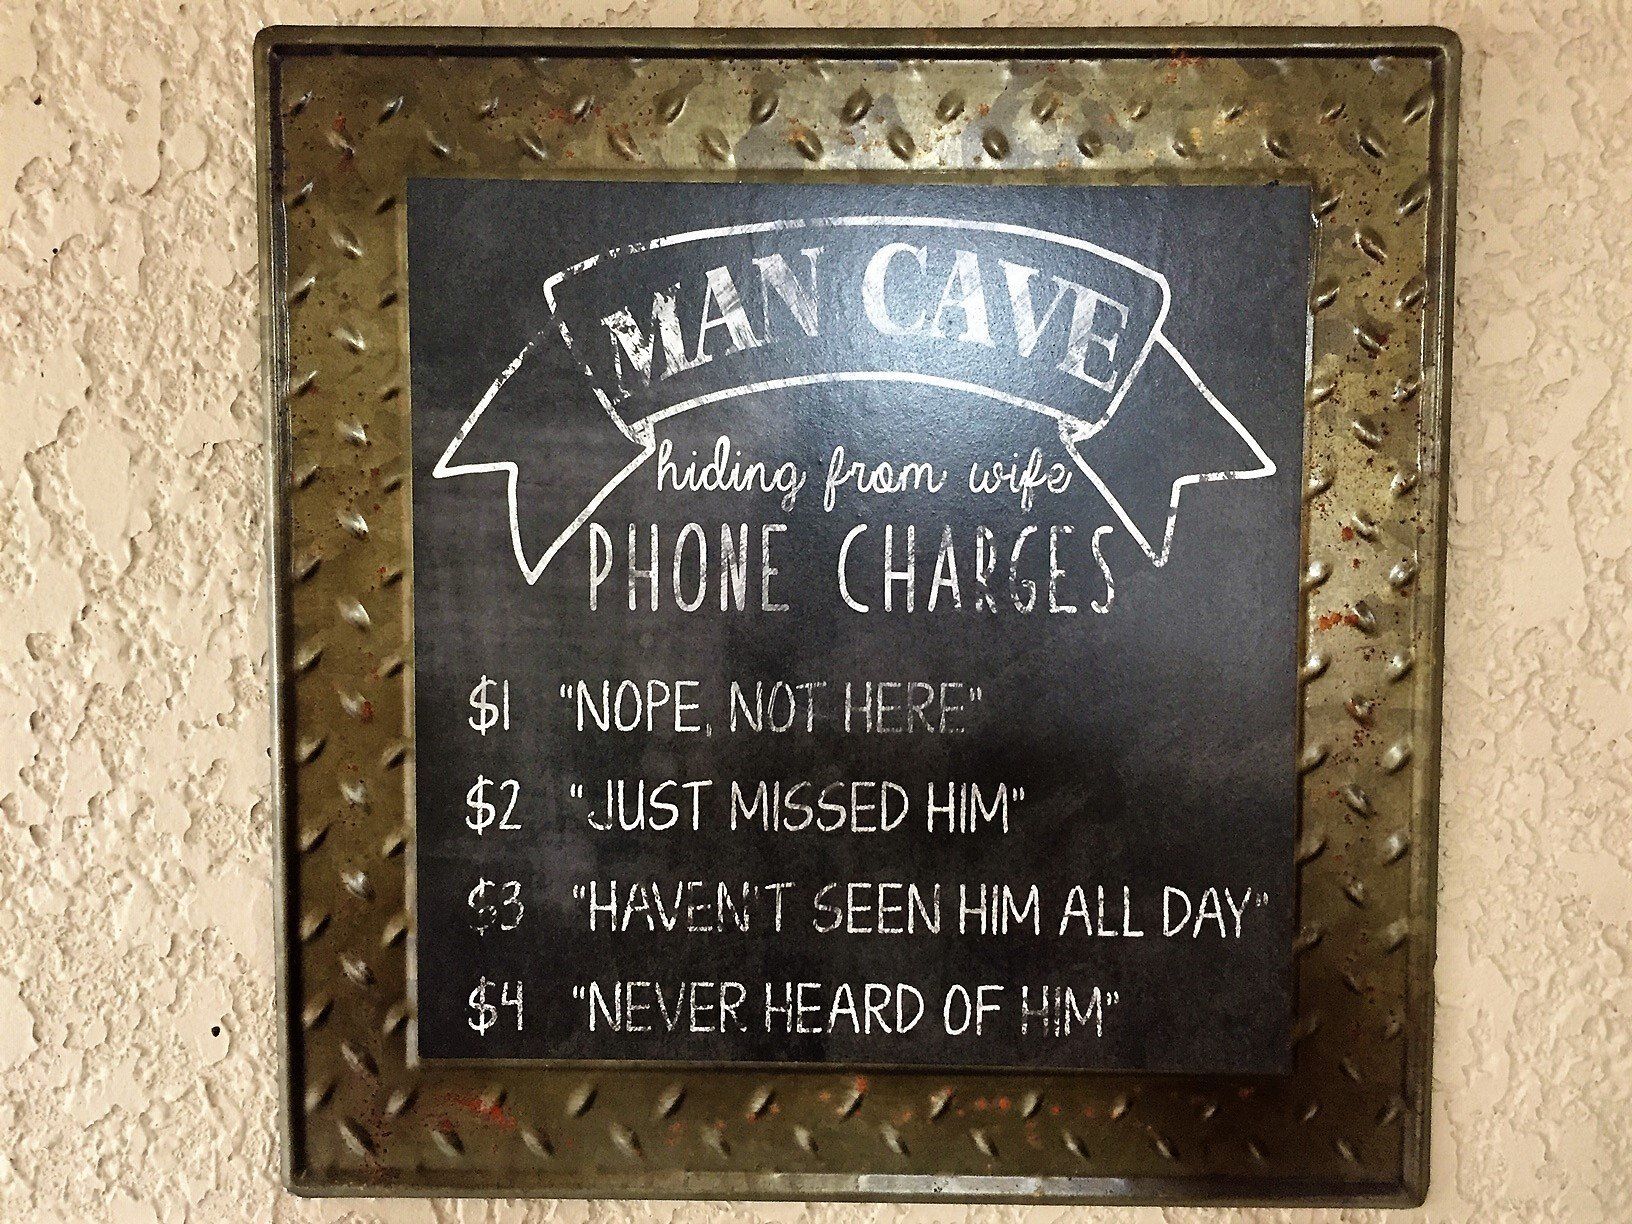 MAN CAVE
hiding from wife
PHONE CHARGES
$1 "NOPE, NOT HERE"
$2 "JUST MISSED HIM"
$3 "HAVEN'T SEEN HIM ALL DAY"
$4 "NEVER HEARD OF HIM"